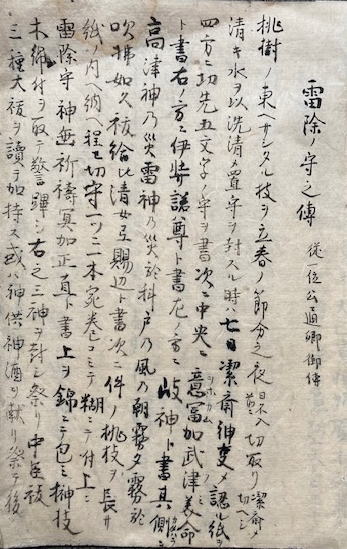 雷除ノ守之傳 従一位公通卿御傳
桃樹ノ東ヘサシタル枝ヲ立春ノ節分之夜 日不入前ニ 切取リ 潔齋メ切ヘシ
清キ水ヲ以洗清メ置守ヲ封スル時ハ七日潔齋神変メ認ル紙ヲ
四方ニ切先五文字ノ守ヲ書次ニ中央ニ意冨加武津美命
ト書右ノ方ニ伊弉諾尊ト書左ノ方ニ岐神ト書其側ニ
高津神乃災雷神乃災於科戸乃風乃朝霧夕霧於
吹拂如久祓給比清女玉賜辺ト書次ニ件ノ桃枝ヲ長サ
紙ノ内ヘ納ヘ程ニ切守一ツニ二本宛巻コミテ糊ニテ付上ニ
雷除守神無祈禱冥加正直ト書上ヲ錦ニテ包ミ榊枝
木綿付ヲ取テ警蹕シ右之三神ヲ封シ祭リ中臣祓
三種大祓ヲ讀テ加持ス或ハ神供神酒ヲ献リ祭テ後